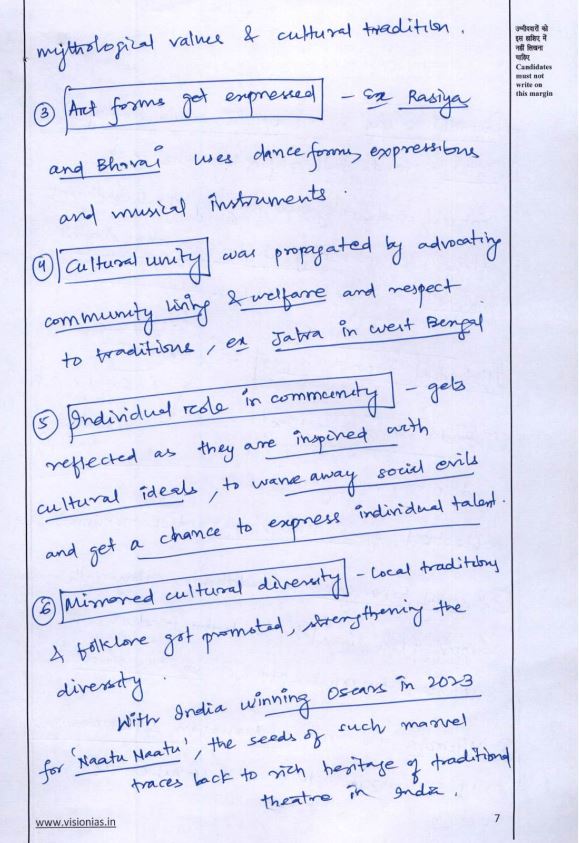 mythological values & cultural tradition.
उम्मीदवारों को
इस हाशिए में
नहीं लिखना
चाहिए
Candidates
must not
write on
this margin
③ Art forms get expressed - Ex Rasiya
and Bhavai uses dance forms, expressions
and musical instruments.
④ Cultural unity was propagated by advocating
community living & welfare and respect
to traditions, ex Jatra in west Bengal
⑤ Individual role in community - gets
reflected as they are inspired with
cultural ideals, to wane away social evils
and get a chance to express individual talent.
⑥ Mirrored cultural diversity - Local traditions
& folklore got promoted, strengthening the
diversity.
With India winning Oscars in 2023
for 'Naatu Naatu', the seeds of such marvel
traces back to rich heritage of traditional
theatre in India.
www.visionias.in
7